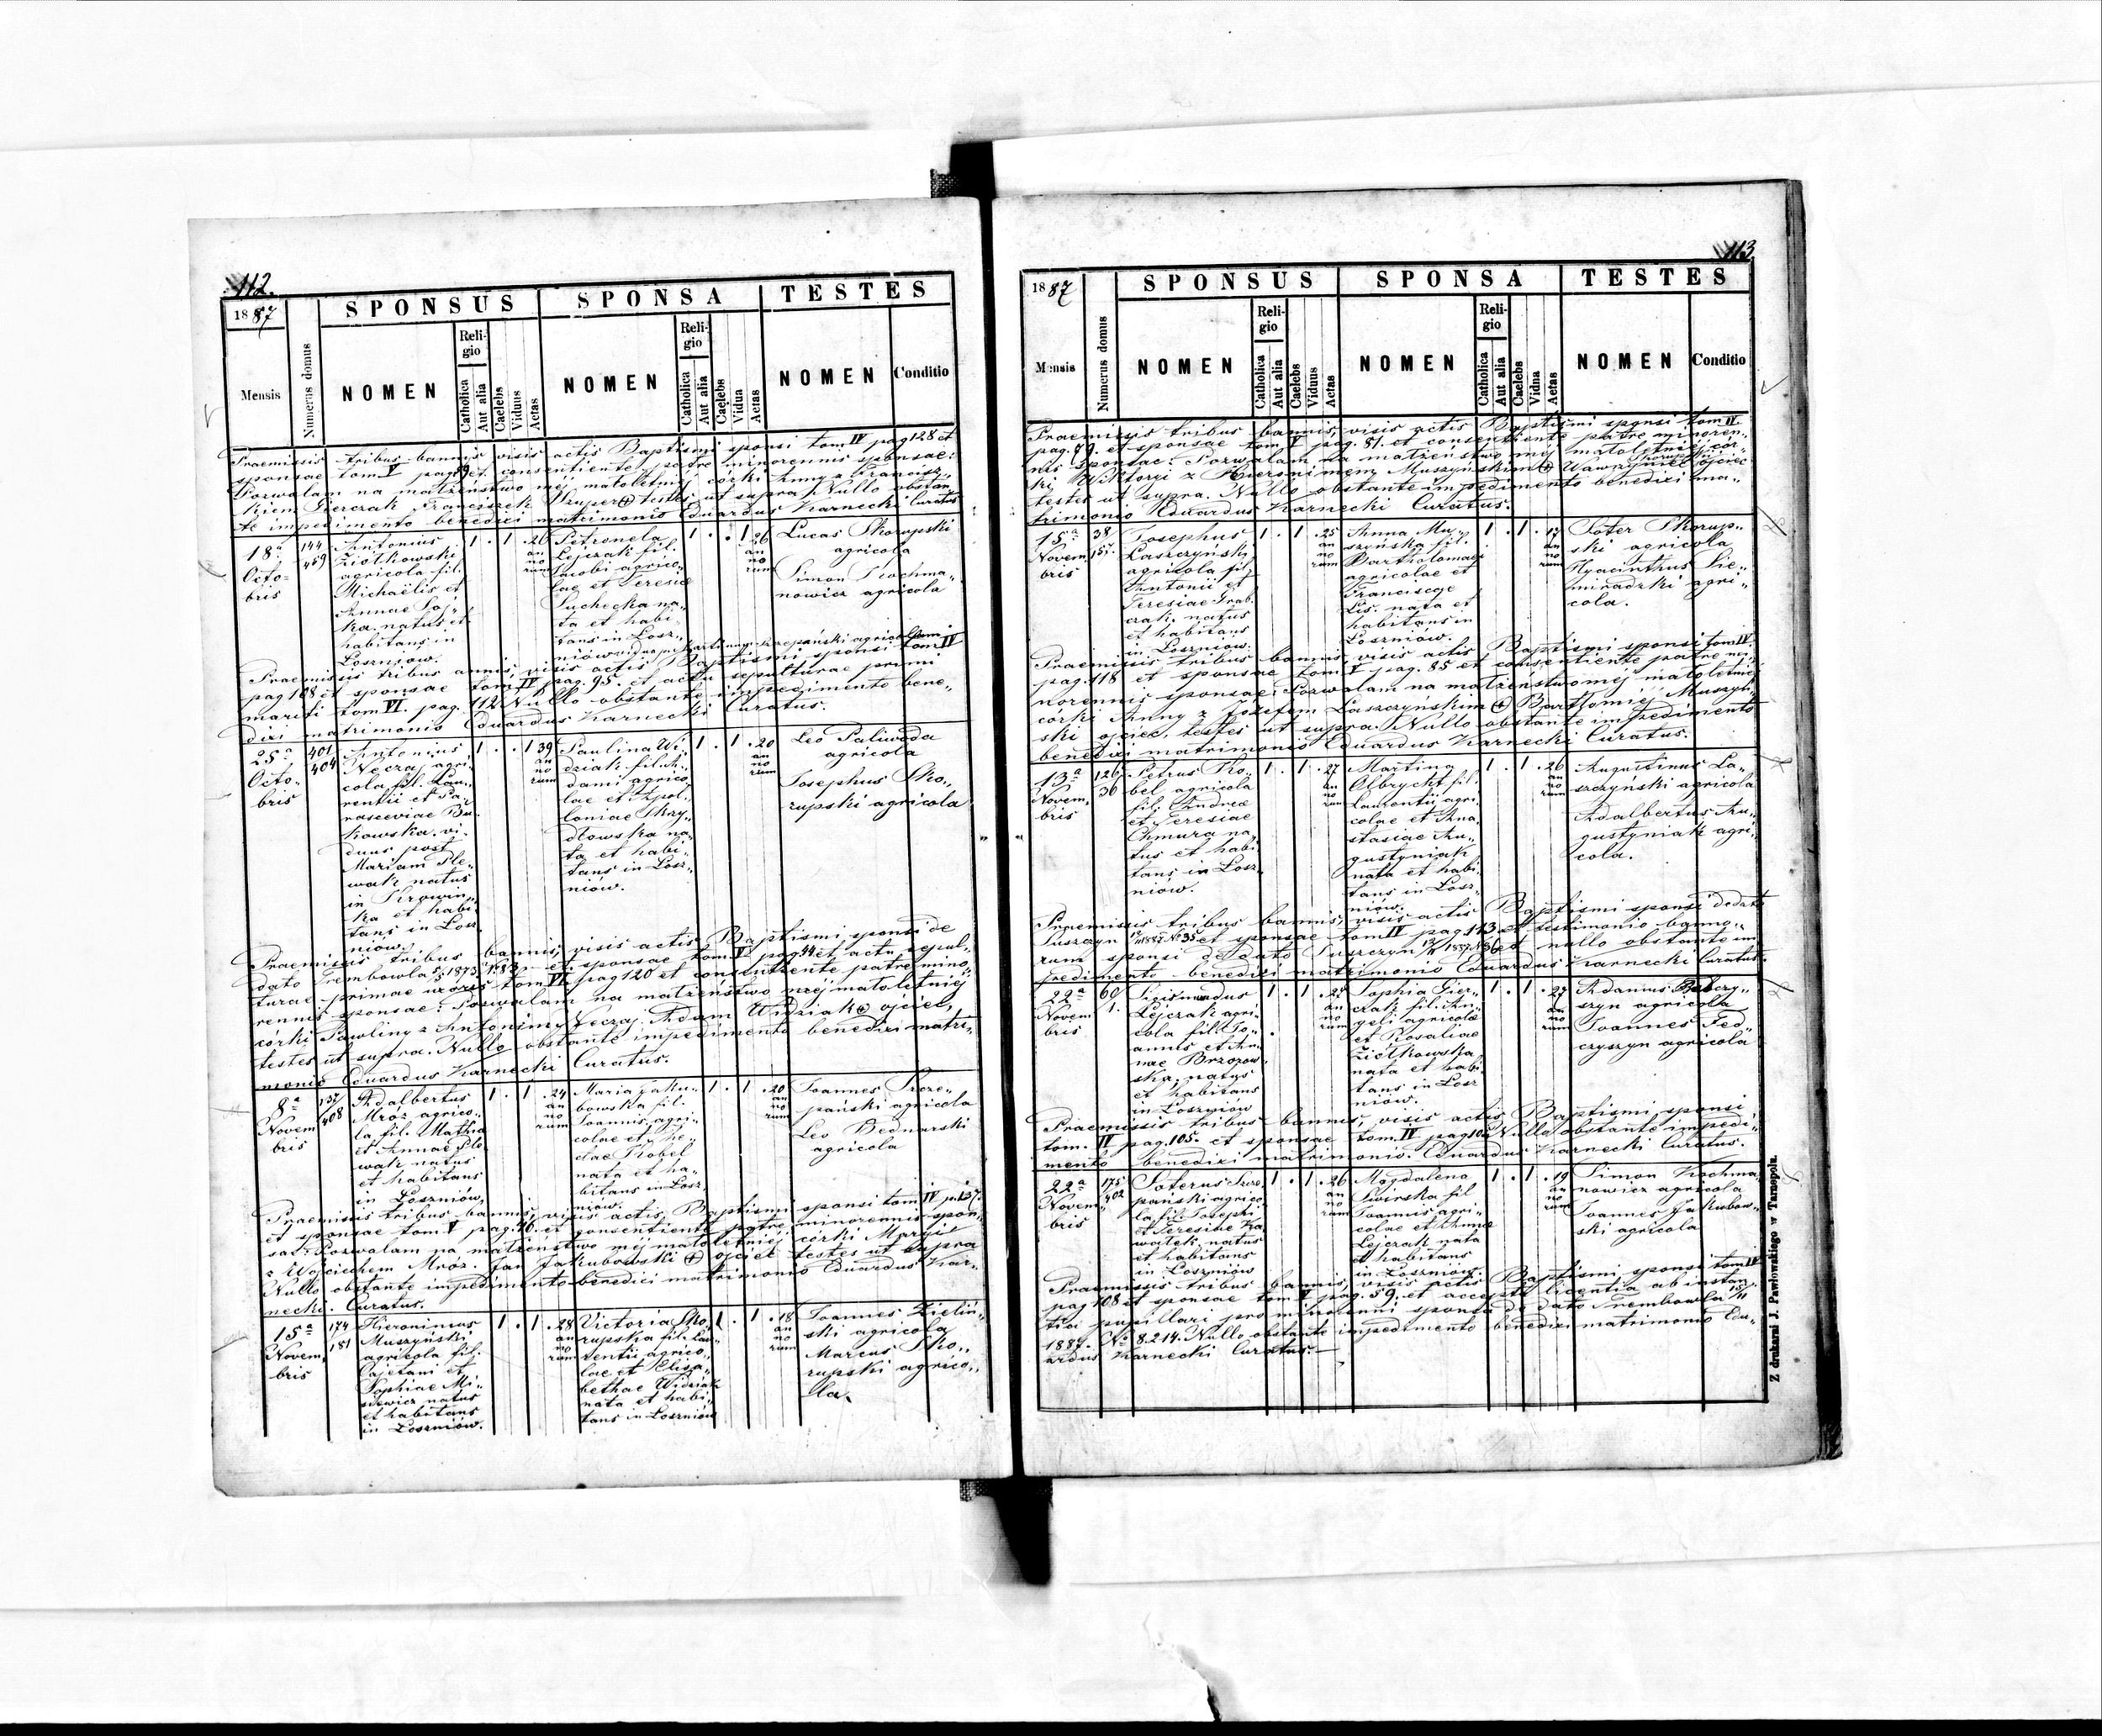 112.
1887
SPONSUS
SPONSA
TESTES
Mensis
Numerus domus
NOMEN
Religio
Catholica
Aut alia
Caelebs
Viduus
Aetas
NOMEN
Religio
Catholica
Aut alia
Caelebs
Vidua
Aetas
NOMEN
Conditio
Praemissis tribus bannis visis actis Baptismi sponsi tom IV pag 128 et
sponsae tom V pag 89 et consentiente patre minorennis sponsae:
Pozwalam na małżeństwo mej małoletniej córki Anny z Francisz„
kiem Gierczak Franciszek testes ut supra Nullo obstan
te impedimento benedixi matrimonio Eduardus Karnecki Curatus
18a
Octo„
bris
144
459
Antonius
Ziołkowski
agricola fil.
Michaëlis et
Annae Soj„
ka. natus et
habitans in
Łoszniów.
1 . 1 . 26
an
no
rum
Petronela
Lejczak fil.
Jacobi agrico„
lae et Teresiae
Suchecka na„
ta et habi„
tans in Łosz„
niów
1 . . 1 26
an
no
rum
Lucas Skorupski
agricola
Simon Kochma„
nowicz agricola
Praemissis tribus annis, visis actis Baptismi sponsi tom IV
pag 108 et sponsae tom IV pag. 95. et actu sepulturae primi
mariti tom VI. pag. 112 Nullo obstante impedimento bene„
dixi matrimonio Eduardus Karnecki Curatus.
25a
Octo„
bris
401
404
Antonius
Neczaj agri
cola fil. Lau„
rentii et Pa„
rasceviae Bu„
kowska. vi„
duus post
Mariam Ple„
wak natus
in Krowin„
ka et habi„
tans in Łosz„
niów.
1 . . 1 39
an
no
rum
Paulina Wi„
dziak fil. A„
dami agrico„
lae et Apol„
loniae Skrzy„
dłowska na„
ta et habi„
tans in Łosz„
niów.
1 . 1 . 20
an
no
rum
Leo Paliwoda
agricola
Josephus Sko„
rupski agricola
Praemissis tribus bannis, visis actis Baptismi sponsi de
dato Trembowla 1873 et sponsae tom V pag 44 et actu sepul„
turae primae uxoris tom VI pag 120 et consentiente patre mino„
rennis sponsae: Pozwalam na małżeństwo mej małoletniej
córki Pawliny z Antonim Neczaj. Adam Widziak ojciec,
testes ut supra. Nullo obstante impedimento benedixi matri„
monio Eduardus Karnecki Curatus.
8a
Novem
bris
137
408
Adalbertus
Mróz agrico„
la fil. Mathia
et Annae Ple
wak natus
et habitans
in Łoszniów.
1 . 1 . 24
an
no
rum
Maria Jaku„
bowska fil.
Joannis agri„
colae et The„
clae Kobel
nata et ha„
bitans in Łosz„
niów.
1 . 1 . 20
an
no
rum
Joannes Szcze„
pański agricola
Leo Bednarski
agricola
Praemissis tribus bannis, visis actis Baptismi sponsi tom IV p. 137.
et sponsae tom V pag. 26. et consentiente patre minorennis spon„
sae: Pozwalam na małżeństwo mej małoletniej córki Maryi
z Wojciechem Mróz. Jan Jakubowski ojciec testes ut supra
Nullo obstante impedimento benedixi matrimonio Eduardus Kar„
necki. Curatus.
15a
Novem„
bris
174
181
Hieronimus
Muszyński
agricola fil.
Cajetani et
Sophiae Mi„
siewicz natus
et habitans
in Łoszniów.
1 . 1 . 28
an
no
rum
Victoria Sko„
rupska fil. Lau„
rentii agrico„
lae et Elisa„
bethae Widziak
nata et habi„
tans in Łoszniów
1 . 1 . 18
an
no
rum
Joannes Zieliń„
ski agricola
Marcus Sko„
rupski agrico„
la.
113
1887
SPONSUS
SPONSA
TESTES
Mensis
Numerus domus
NOMEN
Religio
Catholica
Aut alia
Caelebs
Viduus
Aetas
NOMEN
Religio
Catholica
Aut alia
Caelebs
Vidna
Aetas
NOMEN
Conditio
Praemissis tribus bannis, visis actis Baptismi sponsi tom IV
pag. 79. et sponsae tom V pag. 81. et consentiente patre minoren„
nis sponsae: Pozwalam na małżeństwo mej małoletniej cór„
ki Wiktoryi z Hieronimem Muszyńskim Wawrzyniec Skorupski ojciec
testes ut supra. Nullo obstante impedimento benedixi ma„
trimonio Eduardus Karnecki Curatus.
15a
Novem
bris
38
157
Josephus
Łaszczyński
agricola fil.
Antonii et
Teresiae Grab„
czak. natus
et habitans
in Łoszniów.
1 . 1 . 25
an
no
rum
Anna Mu„
szyńska fil.
Bartholomaei
agricolae et
Franciscae
Lis. nata et
habitans in
Łoszniów.
1 . 1 . 17
an
no
rum
Soter Skorup„
ski agricola
Hyacinthus Sie„
miradzki agri„
cola.
Praemissis tribus bannis, visis actis Baptismi sponsi tom IV
pag. 118 et sponsae tom V pag. 85 et consentiente patre mi„
norennis sponsae: Pozwalam na małżeństwo mej małoletniej
córki Anny z Józefem Łaszczyńskim Bartłomiej Muszyń„
ski ojciec. testes ut supra. Nullo obstante impedimento
benedixi matrimonio Eduardus Karnecki Curatus.
13a
Novem„
bris
126
36
Petrus Ko„
bel agricola
fil. Andreae
et Teresiae
Chmura na„
tus et habi„
tans in Łosz„
niów.
1 . 1 . 27
an
no
rum
Martina
Olbrycht fil.
Laurentii agri„
colae et Ana„
stasiae Au„
gustyniak
nata et habi„
tans in Łosz„
niów.
1 . 1 . 26
an
no
rum
Augustinus Ła„
szczyński agricola
Adalbertus Au„
gustyniak agri„
cola.
Praemissis tribus bannis, visis actis Baptismi sponsi de dato
Suszczyn 1887 No 35 et sponsae tom IV pag 143 et testimonio banno„
rum sponsi de dato Suszczyn 1887 No 36 et nullo obstante im
pedimento benedixi matrimonio Eduardus Karnecki Curatus.
22a
Novem
bris
60
1.
Sigismundus
Lejczak agri„
cola fil. Jo„
annis et An„
nae Brzozow„
ska, natus
et habitans
in Łoszniów
1 . 1 . 27
an
no
rum
Sophia Gier„
czak fil. An„
geli agricolae
et Rosaliae
Ziółkowska
nata et habi„
tans in Łosz„
niów.
1 . 1 . 27
an
no
rum
Adamus
szyn agricola
Joannes Fed„
czyszyn agricola
Praemissis tribus bannis, visis actis Baptismi sponsi
tom. IV pag. 105. et sponsae tom. IV pag Nullo obstante impedi„
mento benedixi matrimonio. Eduardus Karnecki Curatus.
22a
Novem„
bris
175
402
Soterus Szcze„
pański agrico„
la fil. Josephi
et Teresiae Ka„
wałek. natus
et habitans
in Łoszniów
1 . 1 . 26
an
no
rum
Magdalena
Świrska fil
Joannis agri„
colae et Annae
Lejczak nata
et habitans
in Łoszniów.
1 . 1 . 19
an
no
rum
Simon Kochma„
nowicz agricola
Joannes Jakubow„
ski agricola
Praemissis tribus bannis, visis actis Baptismi sponsi tom IV
pag 108 et sponsae tom V pag. 59. et accepta licentia ab instan„
tia pupillari pro minorenni sponsa de dato Trembowla
1887. No 8.214. Nullo obstante impedimento benedixi matrimonio Edu„
ardus Karnecki Curatus.
Z drukarni J. Pawłowskiego w Tarnopolu.